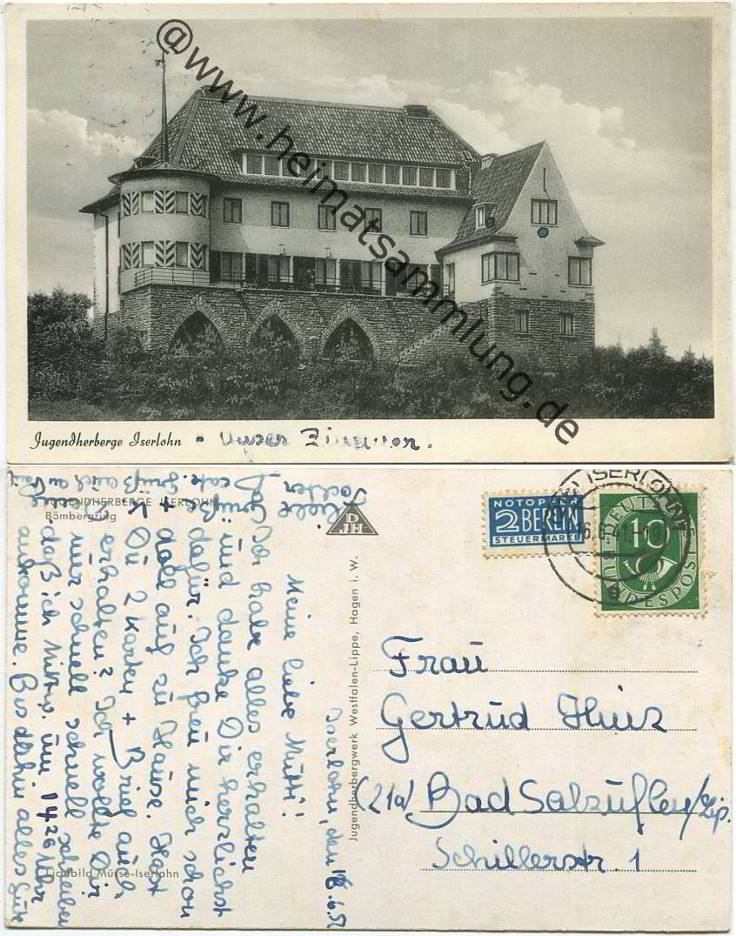 @www.heimatsammlung.de
Jugendherberge Iserlohn - Unser Zimmer.
JUGENDHERBERGE ISERLOHN
Bömbergring
DJH
NOTOPFER
2 BERLIN
STEUERMARKE
ISERLOHN
DEUTSCHE
10
BUNDESPOST
Iserlohn, den 16.6.52
Meine liebe Mutti!
Ich habe alles erhalten
und danke Dir herzlichst
dafür. Ich freu mich schon
doll auf zu Hause. Hast
Du 2 Karten + Brief auch
erhalten? Ich wollte Dir
nur schnell schnell schreiben
daß ich Mittw. um 1426 Uhr
ankomme. Bis dahin alles Gute
Viele Grüße
Jugendherbergwerk Westfalen-Lippe, Hagen i. W.
Lichtbild Mürse-Iserlohn
Frau
Gertrud
(21a) Bad Salzuflen/Lip.
Schillerstr. 1